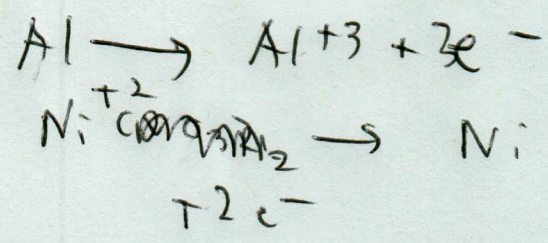 Al → Al+3 + 3e-
Ni+2 → Ni
+2e-